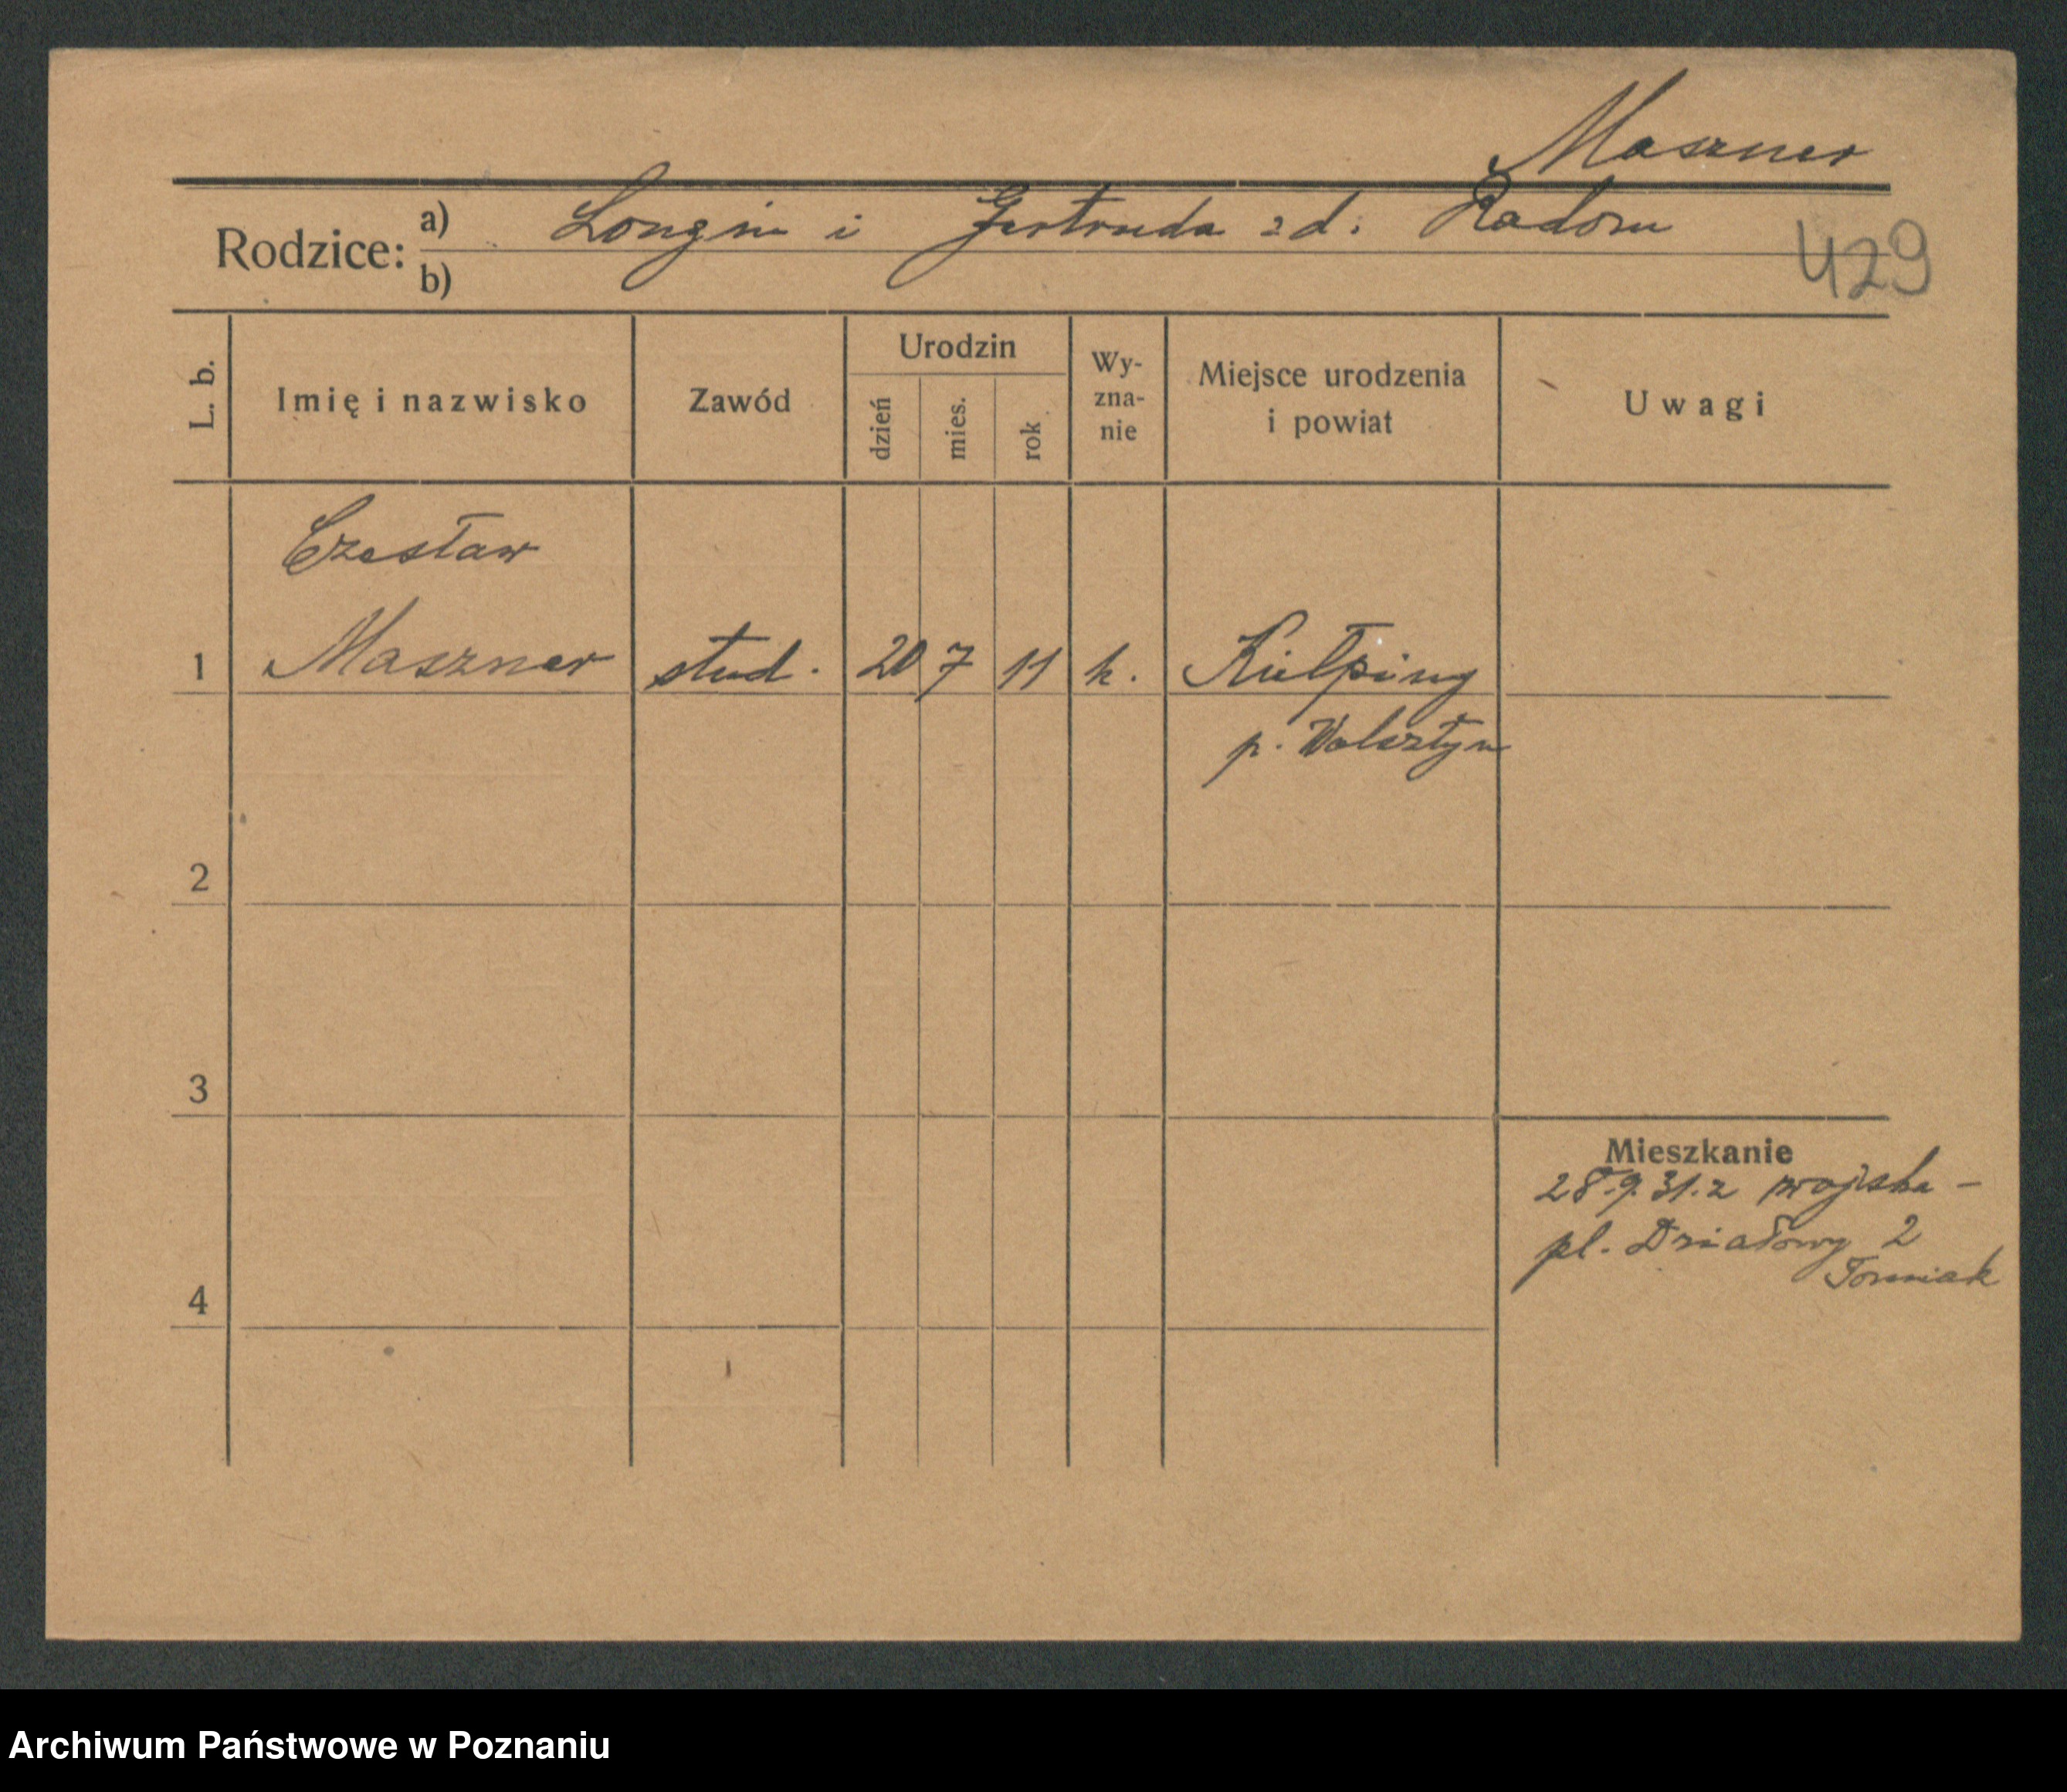 Maszner
Rodzice: a) Longin i Gertruda z d. Radom
b)
429
L. b.
Imię i nazwisko
Zawód
Urodzin
dzień
mies.
rok
Wy-
zna-
nie
Miejsce urodzenia
i powiat
Uwagi
Czesław
1 Maszner stud. 20 7 11 k. Kiełpiny
p. Wolsztyn
2
3
Mieszkanie
28.9.31. z wojska –
pl. Działowy 2
4
Archiwum Państwowe w Poznaniu